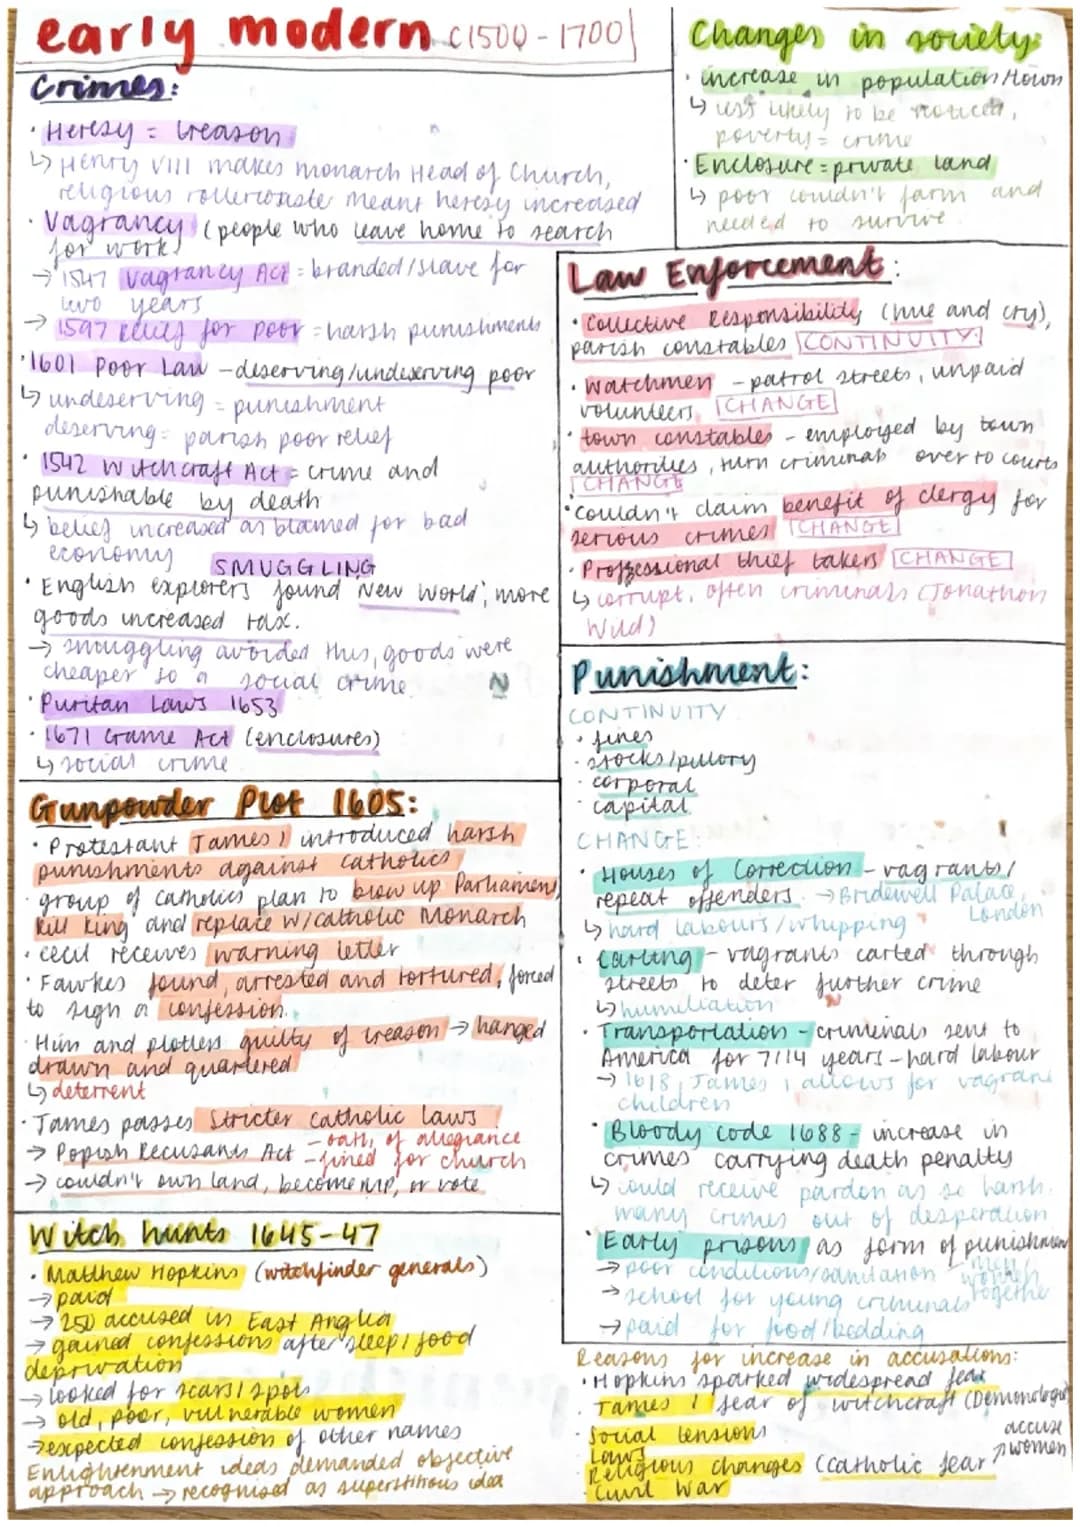 early modern c1500-1700
Crimes:
· Heresy = treason
↳ Henry VIII makes monarch Head of Church,
religious rollercoaste meant heresy increased
· Vagrancy (people who leave home to search
for work)
→ 1547 Vagrancy Act = branded/slave for
two years
→ 1597 Relief for poor = harsh punishments
· 1601 Poor Law - deserving/undeserving poor
↳ undeserving = punishment
deserving = parish poor relief
· 1542 Witchcraft Act = crime and
punishable by death
↳ belief increased as blamed for bad
economy
SMUGGLING
· English explorers found 'New World', more
goods increased tax.
→ smuggling avoided this, goods were
cheaper so a social crime
· Puritan Laws 1653
· 1671 Game Act (enclosures)
↳ social crime
Gunpowder Plot 1605:
· Protestant James I introduced harsh
punishments against catholics
· group of catholics plan to blow up Parliament,
kill king and replace w/catholic Monarch
· cecil receives warning letter
· Fawkes found, arrested and tortured, forced
to sign a confession.
· Him and plotters guilty of treason → hanged
drawn and quartered
↳ deterrent
· James passes stricter catholic laws
→ Popish Recusants Act - oath of allegiance
- fined for church
→ couldn't own land, become MP, or vote
Witch hunts 1645-47
· Matthew Hopkins (witchfinder generals)
→ paid
→ 250 accused in East Anglia
→ gained confessions after sleep/food
deprivation
→ looked for scars/spots
→ old, poor, vulnerable women
→ expected confession of other names
Enlightenment ideas demanded objective
approach → recognised as superstitious idea
Changes in society:
· increase in population/town
↳ less likely to be noticed,
poverty = crime
· Enclosure = private land
↳ poor couldn't farm and
needed to survive
Law Enforcement:
· Collective Responsibility (hue and cry),
parish constables CONTINUITY
· Watchmen - patrol streets, unpaid
volunteers CHANGE
· town constables - employed by town
authorities, turn criminals over to courts
CHANGE
· couldn't claim benefit of clergy for
serious crimes CHANGE
· Professional thief takers CHANGE
↳ corrupt, often criminals (Jonathon
Wild)
Punishment:
CONTINUITY
· fines
· stocks/pillory
· corporal
· capital
CHANGE:
· Houses of Correction - vagrants/
repeat offenders. → Bridewell Palace,
London
↳ hard labours/whipping
· Carting - vagrants carted through
streets to deter further crime
↳ humiliation
· Transportation - criminals sent to
America for 7/14 years - hard labour
→ 1618, James I allows for vagrant
children
· Bloody code 1688 - increase in
crimes carrying death penalty
↳ could receive pardon as so harsh,
many crimes out of desperation
· Early prisons as form of punishment
→ poor conditions/sanitation - men/
women
together
→ school for young criminals
→ paid for food/bedding
Reasons for increase in accusations:
· Hopkins sparked widespread fear
· James I fear of witchcraft (Demonologi
· Social tensions
accuse
→ women
· Laws
· Religious changes (Catholic fear
· Civil War